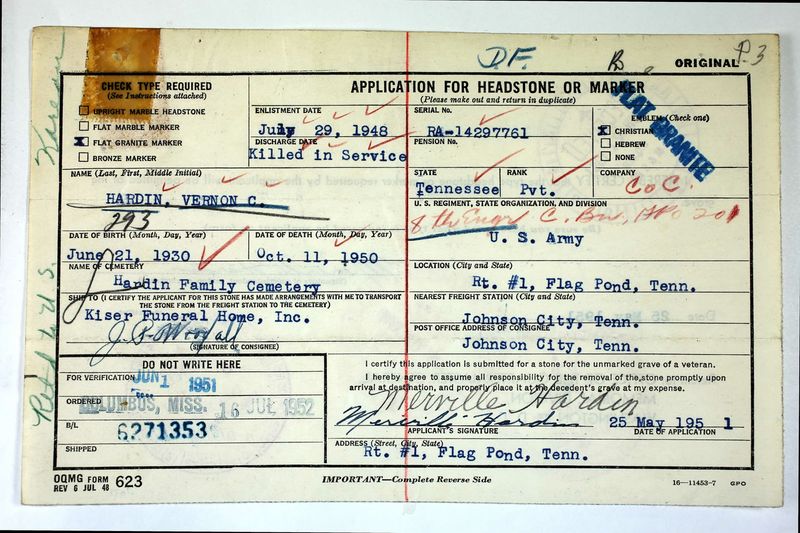 D.F. P.3
ORIGINAL
CHECK TYPE REQUIRED
(See Instructions attached)
UPRIGHT MARBLE HEADSTONE
FLAT MARBLE MARKER
X FLAT GRANITE MARKER
BRONZE MARKER
APPLICATION FOR HEADSTONE OR MARKER
(Please make out and return in duplicate)
FLAT GRANITE
ENLISTMENT DATE
July 29, 1948
DISCHARGE DATE
Killed in Service
SERIAL No.
RA-14297761
PENSION No.
EMBLEM (Check one)
X CHRISTIAN
HEBREW
NONE
NAME (Last, First, Middle Initial)
HARDIN, VERNON C.
293
STATE
Tennessee
RANK
Pvt.
COMPANY
Co C.
U. S. REGIMENT, STATE ORGANIZATION, AND DIVISION
8th Engr C. Bn, APO 201
U. S. Army
DATE OF BIRTH (Month, Day, Year)
June 21, 1930
DATE OF DEATH (Month, Day, Year)
Oct. 11, 1950
NAME OF CEMETERY
Hardin Family Cemetery
LOCATION (City and State)
Rt. #1, Flag Pond, Tenn.
SHIP TO (I CERTIFY THE APPLICANT FOR THIS STONE HAS MADE ARRANGEMENTS WITH ME TO TRANSPORT
THE STONE FROM THE FREIGHT STATION TO THE CEMETERY)
Kiser Funeral Home, Inc.
(SIGNATURE OF CONSIGNEE)
NEAREST FREIGHT STATION (City and State)
Johnson City, Tenn.
POST OFFICE ADDRESS OF CONSIGNEE
Johnson City, Tenn.
DO NOT WRITE HERE
FOR VERIFICATION JUN 1 1951
ORDERED
COLUMBUS, MISS. 16 JUL 1952
B/L
6271353
SHIPPED
I certify this application is submitted for a stone for the unmarked grave of a veteran.
I hereby agree to assume all responsibility for the removal of the stone promptly upon
arrival at destination, and properly place it at the decedent's grave at my expense.
Merville Hardin
Merville Hardin 25 May 195 1
APPLICANT'S SIGNATURE DATE OF APPLICATION
ADDRESS (Street, City, State)
Rt. #1, Flag Pond, Tenn.
OQMG FORM
REV 6 JUL 48 623
IMPORTANT—Complete Reverse Side
16—11453-7 GPO
Korean
Ret'd to U.S.